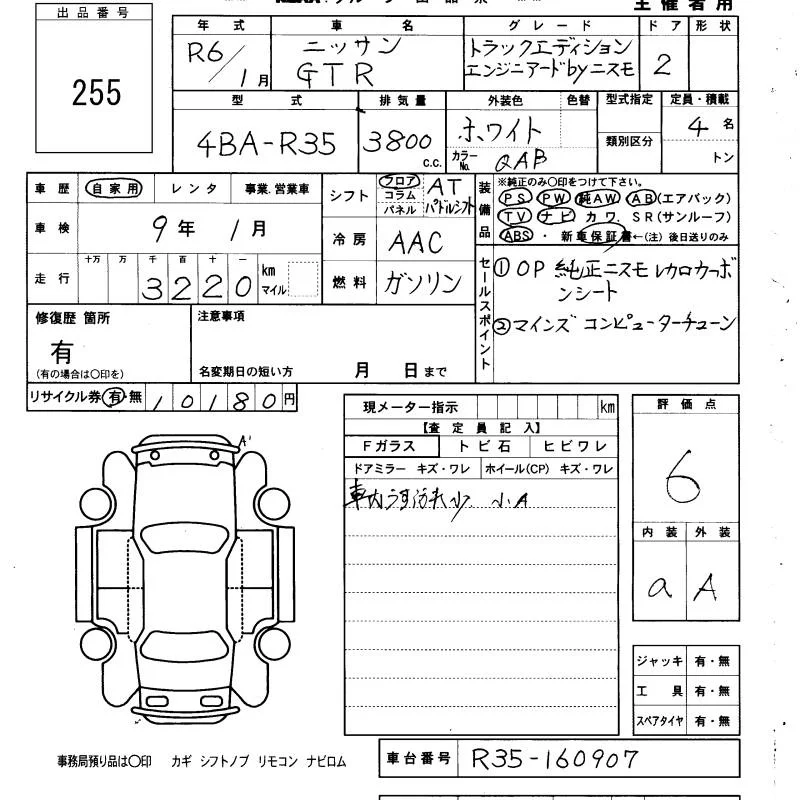 主催者用
出品番号
255
年式
R6/1月
車名
ニッサン
GTR
グレード
トラックエディション
エンジニアードbyニスモ
ドア
2
形状
型式
4BA-R35
排気量
3800
c.c.
外装色
ホワイト
色替
カラーNo.
QAB
型式指定
類別区分
定員・積載
4名
トン
車歴
自家用
レンタ
事業.営業車
車検
9年 1月
走行
十万 万 千 百 十 一
3220
km
マイル
シフト
フロア
コラム
パネル
AT
パドルシフト
冷房
AAC
燃料
ガソリン
装備品
※純正のみ〇印をつけて下さい。
PS PW 純AW AB(エアバック)
TV ナビ カワ SR(サンルーフ)
ABS・新車保証書←(注)後日送りのみ
セールスポイント
①OP 純正ニスモレカロカーボンシート
②マインズ コンピューターチューン
修復歴 箇所
有
(有の場合は〇印を)
注意事項
名変期日の短い方 月 日まで
リサイクル券 有・無 10180円
現メーター指示 km
【査定員記入】
Fガラス トビ石 ヒビワレ
ドアミラー キズ・ワレ ホイール(CP) キズ・ワレ
車内うす汚れ小 小A
評価点
6
内装 外装
a A
A'
ジャッキ 有・無
工具 有・無
スペアタイヤ 有・無
事務局預り品は〇印 カギ シフトノブ リモコン ナビロム
車台番号
R35-160907